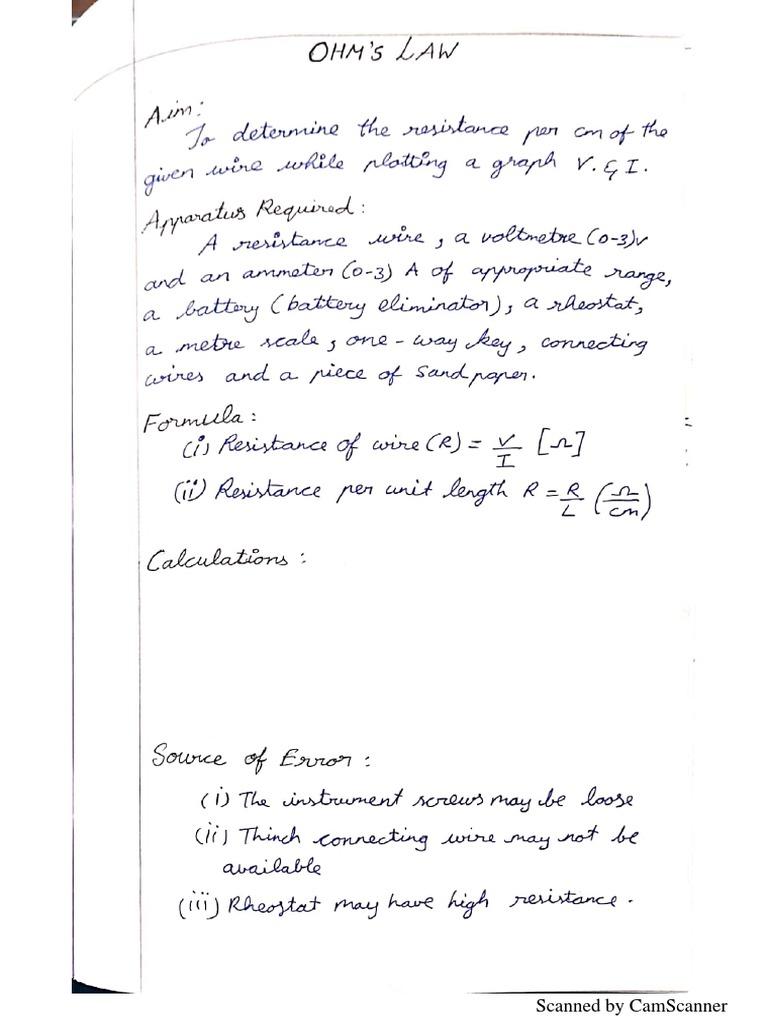 OHM'S LAW
Aim:
To determine the resistance per cm of the
given wire while plotting a graph V. & I.
Apparatus Required:
A resistance wire, a voltmetre (0-3)v
and an ammeter (0-3) A of appropriate range,
a battery (battery eliminator), a rheostat,
a metre scale, one-way key, connecting
wires and a piece of sand paper.
Formula:
(i) Resistance of wire (R) = V/I [Ω]
(ii) Resistance per unit length R = R/L (Ω/cm)
Calculations:
Source of Error:
(i) The instrument screws may be loose
(ii) Thinch connecting wire may not be
available
(iii) Rheostat may have high resistance.
Scanned by CamScanner